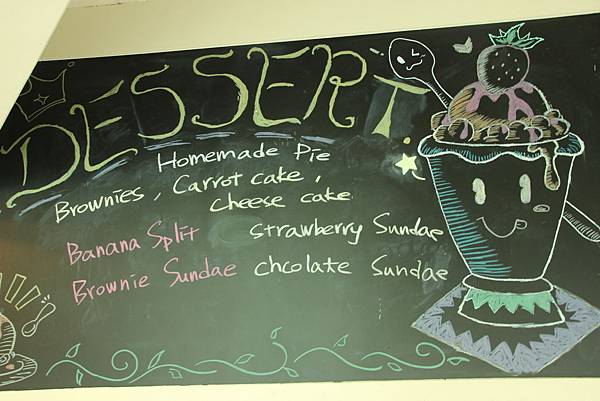 DESSERT
Homemade Pie
Brownies, Carrot cake,
cheese cake
Banana Split strawberry Sundae
Brownie Sundae chcolate Sundae